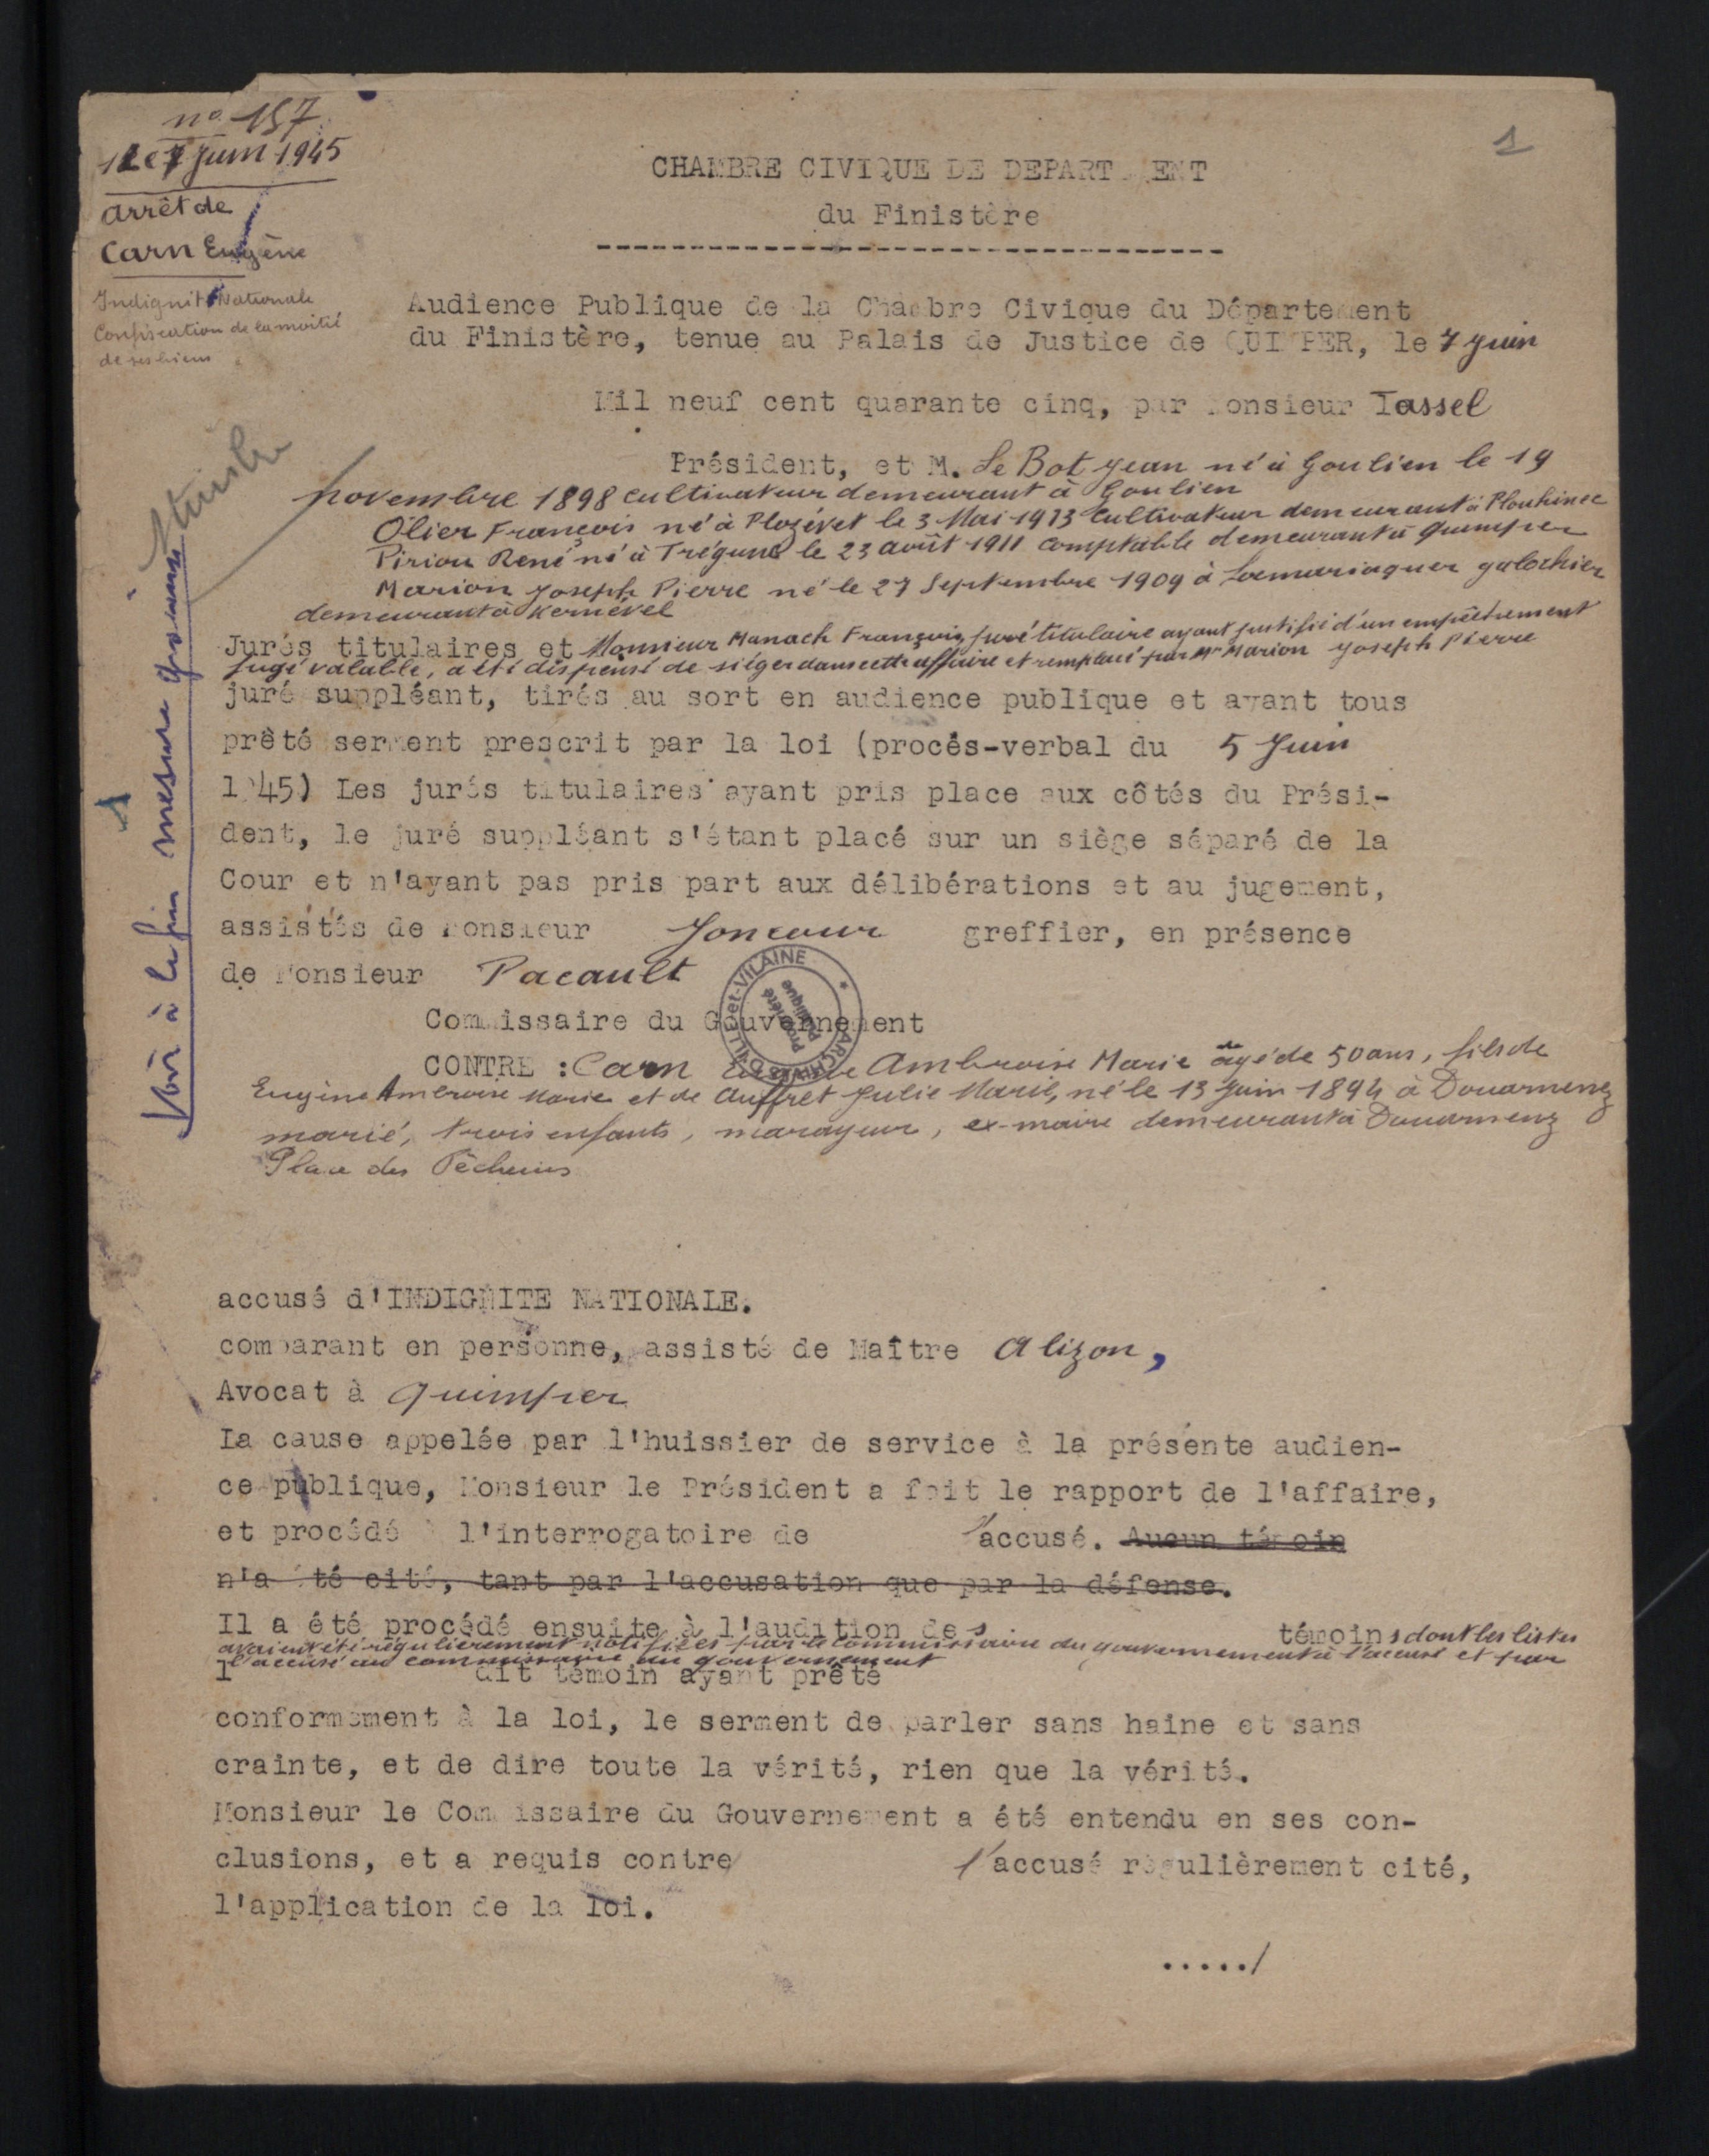 no 157
7 Juin 1945
arrêt de
Carn Eugène
Indignité Nationale
Confiscation de la moitié
de ses biens
1
CHAMBRE CIVIQUE DE DEPARTEMENT
du Finistère
Audience Publique de la Chambre Civique du Département
du Finistère, tenue au Palais de Justice de QUIMPER, le 7 Juin
Mil neuf cent quarante cinq, par Monsieur Tassel
Président, et M. Le Bot Jean né à Goulien le 19
novembre 1898 cultivateur demeurant à Goulien
Olier François né à Plozévet le 3 Mai 1913 Cultivateur demeurant à Plouhinec
Piriou René né à Trégunc le 23 août 1911 comptable demeurant à Quimper
Marion Joseph Pierre né le 27 Septembre 1909 à Locmariaquer galochier
demeurant à Kernével
Jurés titulaires et Monsieur Manach François juré titulaire ayant justifié d'un empêchement
jugé valable, a été dispensé de siéger dans cette affaire et remplacé par Mr Marion Joseph Pierre
juré suppléant, tirés au sort en audience publique et ayant tous
prêté serment prescrit par la loi (procès-verbal du 5 Juin
1945) Les jurés titulaires ayant pris place aux côtés du Prési-
dent, le juré suppléant s'étant placé sur un siège séparé de la
Cour et n'ayant pas pris part aux délibérations et au jugement,
assistés de Monsieur Joncour greffier, en présence
de Monsieur Pacault
Commissaire du Gouvernement
CONTRE : Carn Eugène Ambroise Marie âgé de 50 ans, fils de
Eugène Ambroise Marie et de Auffret Julie Marie, né le 13 Juin 1894 à Douarnenez
marié, trois enfants, mareyeur, ex-maire demeurant à Douarnenez
Place des Pêcheurs
ARCHIVES D'ILLE-et-VILAINE
Propriété
Publique
Voir à la fin mesure gracieuse
accusé d'INDIGNITE NATIONALE.
comparant en personne, assisté de Maître Alizon,
Avocat à Quimper
La cause appelée par l'huissier de service à la présente audien-
ce publique, Monsieur le Président a fait le rapport de l'affaire,
et procédé à l'interrogatoire de l'accusé. Aucun témoin
n'a été cité, tant par l'accusation que par la défense.
Il a été procédé ensuite à l'audition des témoins dont les listes
avaient été régulièrement notifiées par le commissaire du gouvernement à l'accusé et par
l'accusé au commissaire du gouvernement
l dit témoin ayant prêté
conformément à la loi, le serment de parler sans haine et sans
crainte, et de dire toute la vérité, rien que la vérité.
Monsieur le Commissaire du Gouvernement a été entendu en ses con-
clusions, et a requis contre l'accusé régulièrement cité,
l'application de la loi.
...../